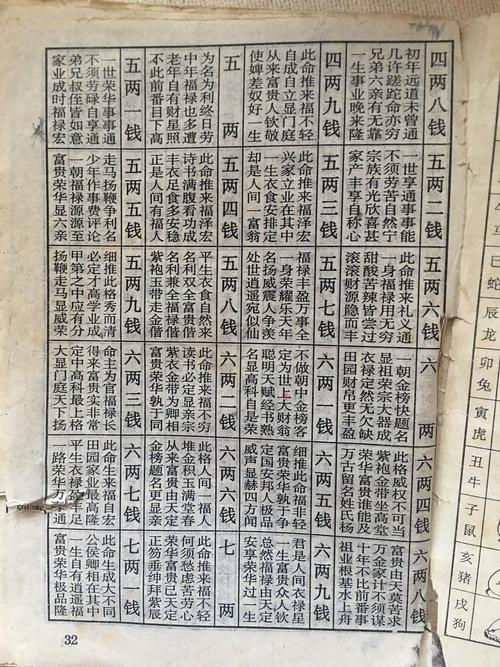 四两八钱
初年远道未曾通
几许蹉跎命亦穷
兄弟六亲有无靠
一生事业晚来隆
四两九钱
此命推来福不轻
自成自立显门庭
从来富贵人钦敬
使婢差奴好一生
五两
为名为利终日劳
中年福禄也多遭
老年自有财星照
不此前番目下高
五两一钱
一世荣华事事通
不须劳碌自享通
弟兄叔侄皆如意
家业成时福禄宏
五两二钱
一世享通事事能
不须劳苦自然宁
宗族有光欣喜甚
家产丰享自称心
五两三钱
此命推来福泽宏
兴家立业在其中
一生衣食安排定
却是人间一富翁
五两四钱
此命推来福泽宏
诗书满腹看功成
丰衣足食多安稳
正是人间有福人
五两五钱
走马扬鞭争利名
少年作事费评论
一朝福禄源源至
富贵荣华显六亲
五两六钱
此命推来礼义通
一身福禄用无穷
甜酸苦辣皆尝过
滚滚财源隐而丰
五两七钱
福禄丰盈万事全
一身荣耀乐天年
名扬威震人争羡
处世逍遥宛似仙
五两八钱
平生衣食自然来
名利双全富贵偕
名利兼全福禄偕
紫袍玉带走金偕
五两九钱
细推此格秀而清
必定才高学业成
甲第之中应有分
扬鞭走马显威荣
六两
一朝金榜快题名
显祖荣宗大器成
衣禄定然无欠缺
田园财帛更丰盈
六两一钱
不做朝中金榜客
定为世上大财翁
聪明天赋经书熟
名显高科自是荣
六两二钱
此命推来福不穷
读书必定显亲宗
紫衣金带为卿相
富贵荣华孰于同
六两三钱
命主为官福禄长
得来富贵实非常
定中高科最上格
大显门庭天下扬
六两四钱
此格威权不可当
紫袍金带坐高堂
荣华富贵谁能及
万古留名姓氏扬
六两五钱
细推此命福非轻
富贵荣华孰于争
定国安邦人极品
威声显赫四方闻
六两六钱
此格人间一福人
堆金积玉满堂春
从来富贵由天定
金榜题名更显亲
六两七钱
此命生来福自宏
田园家业最高隆
平生衣禄盈丰足
一路荣华万事通
六两八钱
富贵由天莫苦求
万金家计不须谋
十年不比前番事
祖业根基水上舟
六两九钱
君是人间衣禄星
一生富贵众人钦
总然福禄由天定
安享荣华过一生
七两
此命推来福不轻
何须愁虑苦劳心
荣华富贵已天定
正笏垂绅拜紫宸
此命生成大不同
公侯卿相在其中
一生自有逍遥福
富贵荣华极品隆
32
马
巳蛇
辰龙
卯兔
寅虎
丑牛
子鼠
亥猪
戌狗